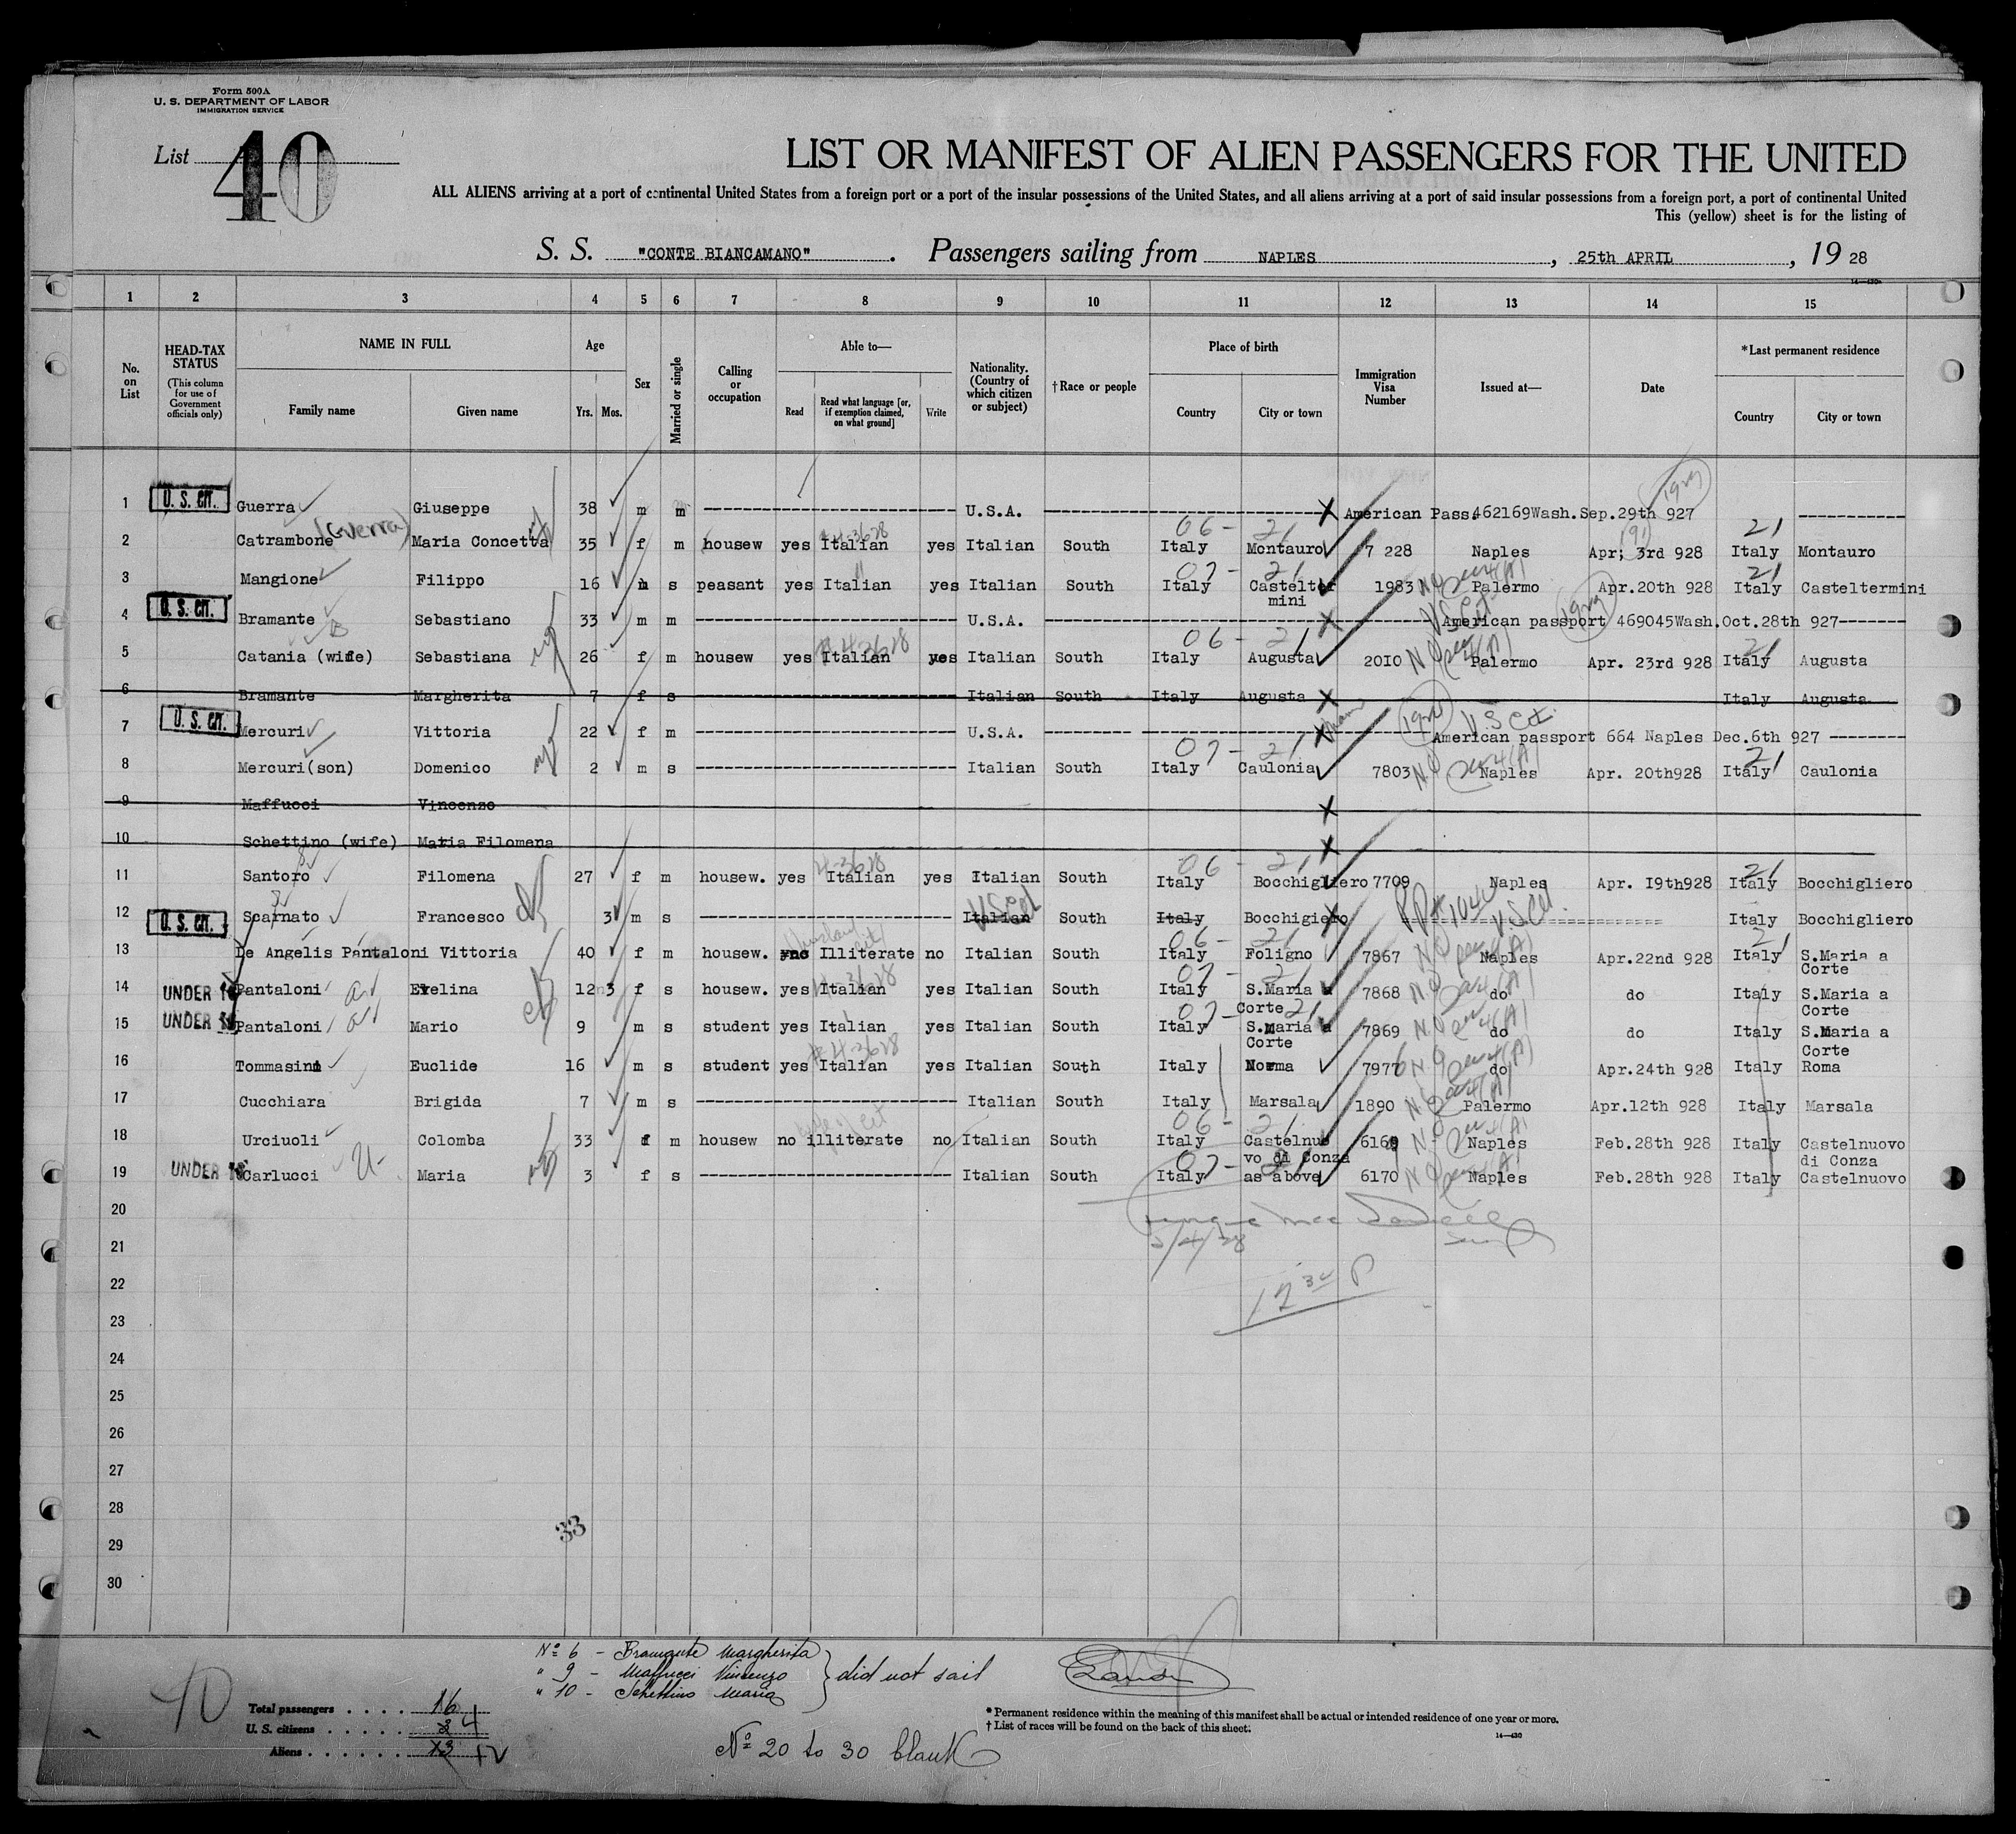 Form 500A
U. S. DEPARTMENT OF LABOR
IMMIGRATION SERVICE
List 40
LIST OR MANIFEST OF ALIEN PASSENGERS FOR THE UNITED
ALL ALIENS arriving at a port of continental United States from a foreign port or a port of the insular possessions of the United States, and all aliens arriving at a port of said insular possessions from a foreign port, a port of continental United
This (yellow) sheet is for the listing of
S. S. "CONTE BIANCAMANO". Passengers sailing from NAPLES, 25th APRIL, 19 28
1 2 3 4 5 6 7 8 9 10 11 12 13 14 15
No. on List
HEAD-TAX STATUS (This column for use of Government officials only)
NAME IN FULL
Family name Given name
Age
Yrs. Mos.
Sex
Married or single
Calling or occupation
Able to—
Read Read what language [or, if exemption claimed, on what ground] Write
Nationality. (Country of which citizen or subject)
†Race or people
Place of birth
Country City or town
Immigration Visa Number
Issued at—
Date
*Last permanent residence
Country City or town
1 U. S. CIT. Guerra Giuseppe 38 m m U.S.A. American Pass.462169Wash.Sep.29th 927
2 Catrambone (Guerra) Maria Concetta 35 f m housew yes Italian yes Italian South Italy Montauro 7 228 Naples Apr; 3rd 928 Italy Montauro
3 Mangione Filippo 16 m s peasant yes Italian yes Italian South Italy Casteltermini 1983 Palermo Apr.20th 928 Italy Casteltermini
4 U. S. CIT. Bramante Sebastiano 33 m m U.S.A. American passport 469045Wash.Oct.28th 927
5 Catania (wife) Sebastiana 26 f m housew yes Italian yes Italian South Italy Augusta 20I0 Palermo Apr. 23rd 928 Italy Augusta
6 Bramante Margherita 7 f s Italian South Italy Augusta Italy Augusta
7 U. S. CIT. Mercuri Vittoria 22 f m U.S.A. American passport 664 Naples Dec.6th 927
8 Mercuri(son) Domenico 2 m s Italian South Italy Caulonia 7803 Naples Apr. 20th928 Italy Caulonia
9 Maffucci Vincenzo
10 Schettino (wife) Maria Filomena
11 Santoro Filomena 27 f m housew. yes Italian yes Italian South Italy Bocchigliero 7709 Naples Apr. I9th928 Italy Bocchigliero
12 U. S. CIT. Scarnato Francesco 3 m s Italian South Italy Bocchigiero Italy Bocchigliero
13 De Angelis Pantaloni Vittoria 40 f m housew. Illiterate no Italian South Italy Foligno 7867 Naples Apr.22nd 928 Italy S.Maria a Corte
14 UNDER 16 Pantaloni Evelina 12 3 f s housew. yes Italian yes Italian South Italy S.Maria a Corte 7868 do do Italy S.Maria a Corte
15 UNDER 16 Pantaloni Mario 9 m s student yes Italian yes Italian South Italy S.Maria a Corte 7869 do do Italy S.Maria a Corte
16 Tommasini Euclide 16 m s student yes Italian yes Italian South Italy Norma 7976 do Apr.24th 928 Italy Roma
17 Cucchiara Brigida 7 m s Italian South Italy Marsala 1890 Palermo Apr.12th 928 Italy Marsala
18 Urciuoli Colomba 33 f m housew no illiterate no Italian South Italy Castelnuovo di Conza 6169 Naples Feb.28th 928 Italy Castelnuovo di Conza
19 UNDER 16 Carlucci Maria 3 f s Italian South Italy as above 6170 Naples Feb.28th 928 Italy Castelnuovo
20
21 5/4/28
22 12 30 P
23
24
25
26
27
28
29 33
30
No 6 - Bramante Margherita
" 9 - Maffucci Vincenzo
" 10 - Schettino Maria
} did not sail
40
Total passengers . . . . 16
U. S. citizens . . . . . 4
Aliens . . . . . . 12
No 20 to 30 blank
* Permanent residence within the meaning of this manifest shall be actual or intended residence of one year or more.
† List of races will be found on the back of this sheet.
14—430